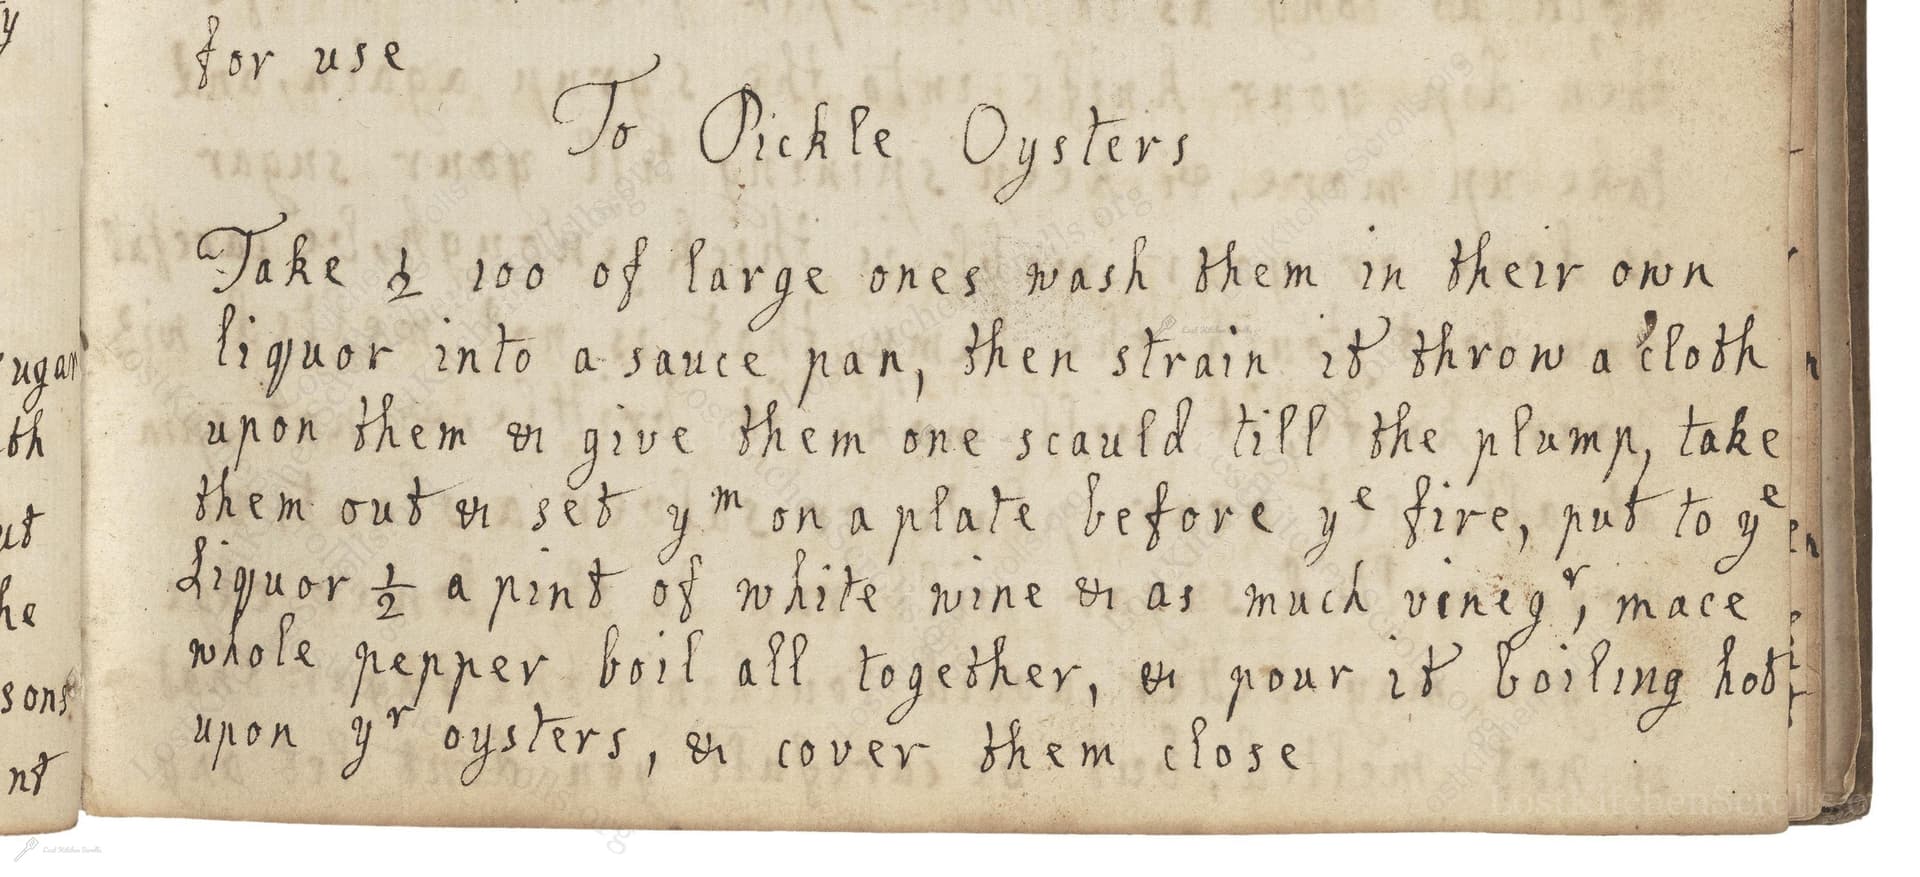 for use
To Pickle Oysters
Take ½ 100 of large ones wash them in their own
liquor into a sauce pan, then strain it throw a cloth
upon them & give them one scauld till the plump, take
them out & set yᵐ on a plate before yᵉ fire, put to yᵉ
Liquor ½ a pint of white wine & as much vinegʳ, mace
whole pepper boil all together, & pour it boiling hot
upon yʳ oysters, & cover them close
ugar
th
ut
he
sons
nt
LostKitchenScrolls.org
Lost Kitchen Scrolls